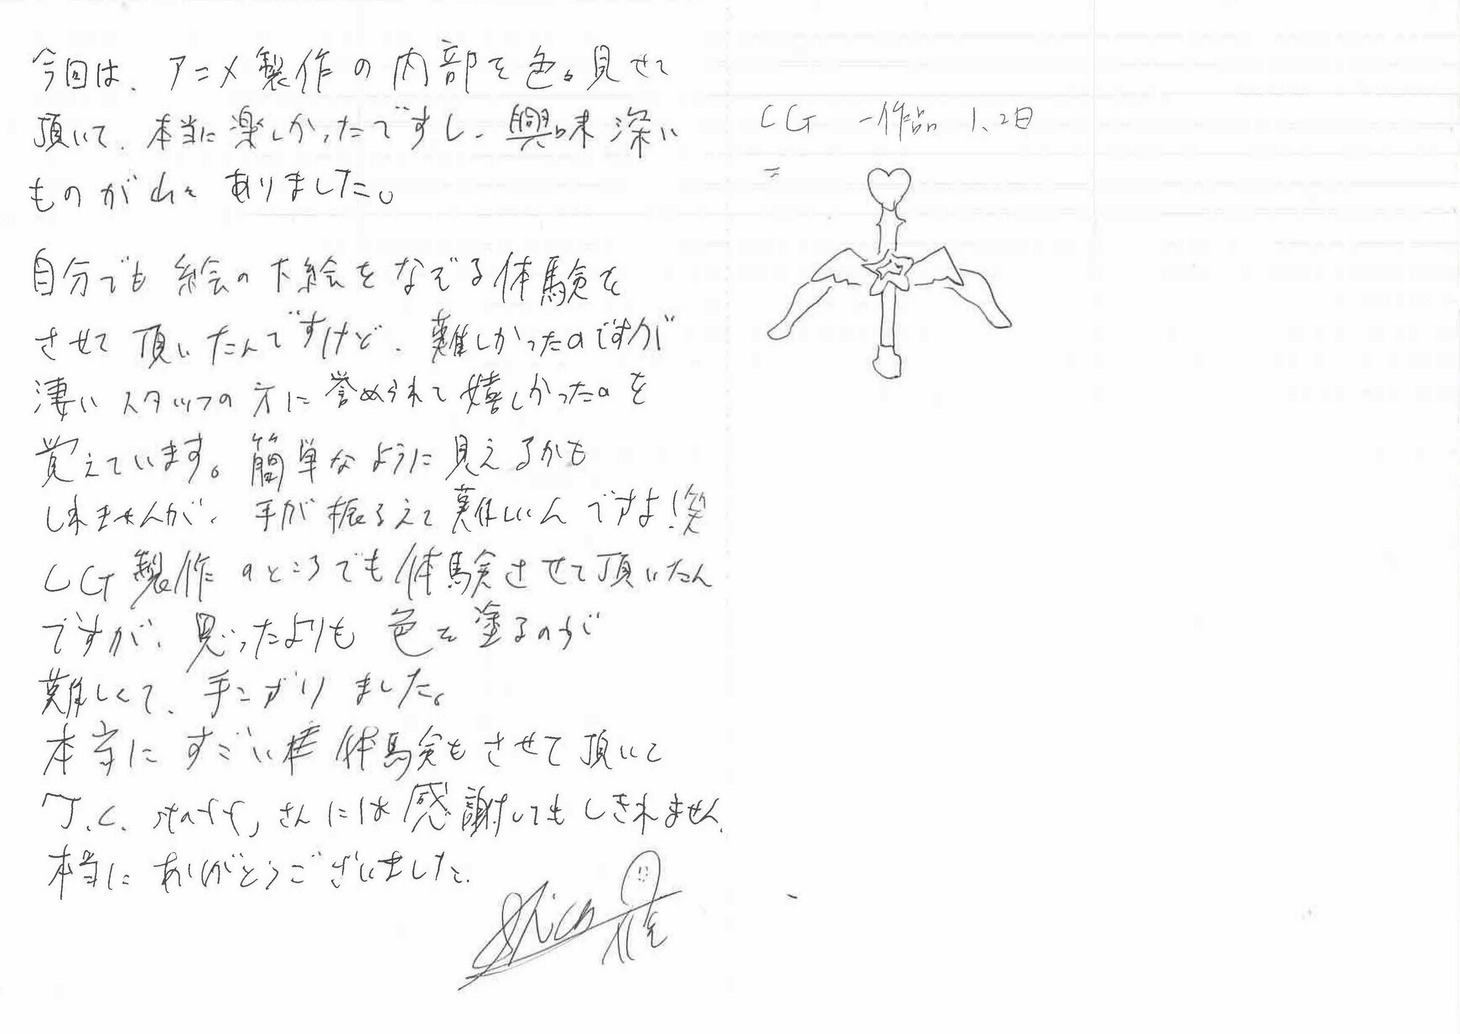 今回は、アニメ製作の内部を色々見せて
頂いて、本当に楽しかったですし、興味深い
ものが山々ありました。
自分でも絵の下絵をなぞる体験を
させて頂いたんですけど、難しかったのですが
凄いスタッフの方に誉められて嬉しかったのを
覚えています。簡単なように見えるかも
しれませんが、手が振るえて難しいんですよ!笑
CG製作のところでも体験させて頂いたん
ですが、思ったよりも色を塗るのが
難しくて、手こずりました。
本当にすごい体験もさせて頂いて
J.C. staffさんには感謝してもしきれません。
本当にありがとうございました。
CG 一作品 1、2日